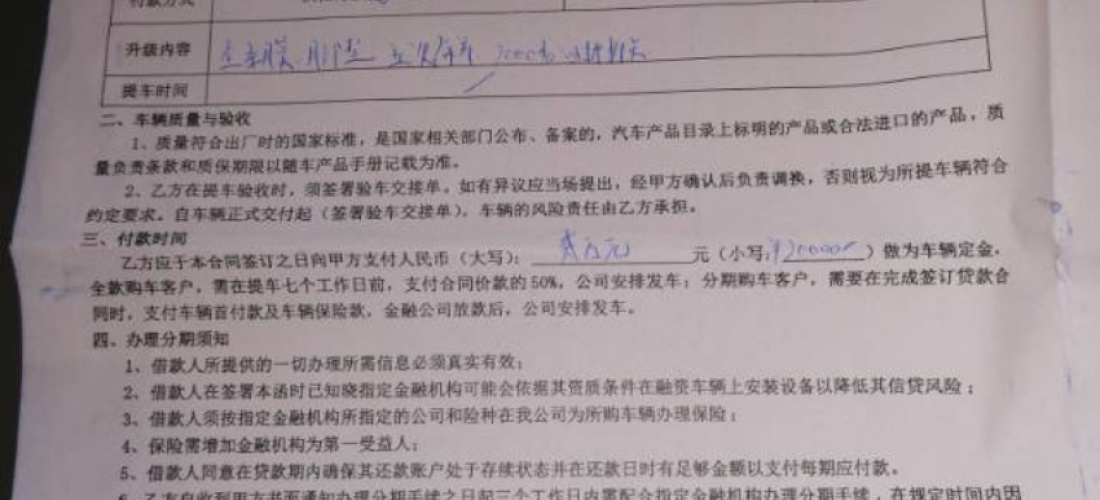 付款方式
升级内容
提车时间
二、车辆质量与验收
1、质量符合出厂时的国家标准，是国家相关部门公布、备案的，汽车产品目录上标明的产品或合法进口的产品，质
量负责条款和质保期限以随车产品手册记载为准。
2、乙方在提车验收时，须签署验车交接单。如有异议应当场提出，经甲方确认后负责调换，否则视为所提车辆符合
约定要求。自车辆正式交付起（签署验车交接单），车辆的风险责任由乙方承担。
三、付款时间
乙方应于本合同签订之日向甲方支付人民币（大写）：贰万元 元（小写：¥20000 ）做为车辆定金，
全款购车客户，需在提车七个工作日前，支付合同价款的50%，公司安排发车；分期购车客户，需要在完成签订贷款合
同时，支付车辆首付款及车辆保险款，金融公司放款后，公司安排发车。
四、办理分期须知
1、借款人所提供的一切办理所需信息必须真实有效；
2、借款人在签署本函时已知晓指定金融机构可能会依据其资质条件在融资车辆上安装设备以降低其信贷风险；
3、借款人须按指定金融机构所指定的公司和险种在我公司为所购车辆办理保险；
4、保险需增加金融机构为第一受益人；
5、借款人同意在贷款期内确保其还款账户处于存续状态并在还款日时有足够金额以支付每期应付款。
6、乙方自收到甲方书面通知办理分期手续之日起三个工作日内需配合指定金融机构办理分期手续，在规定时间内因